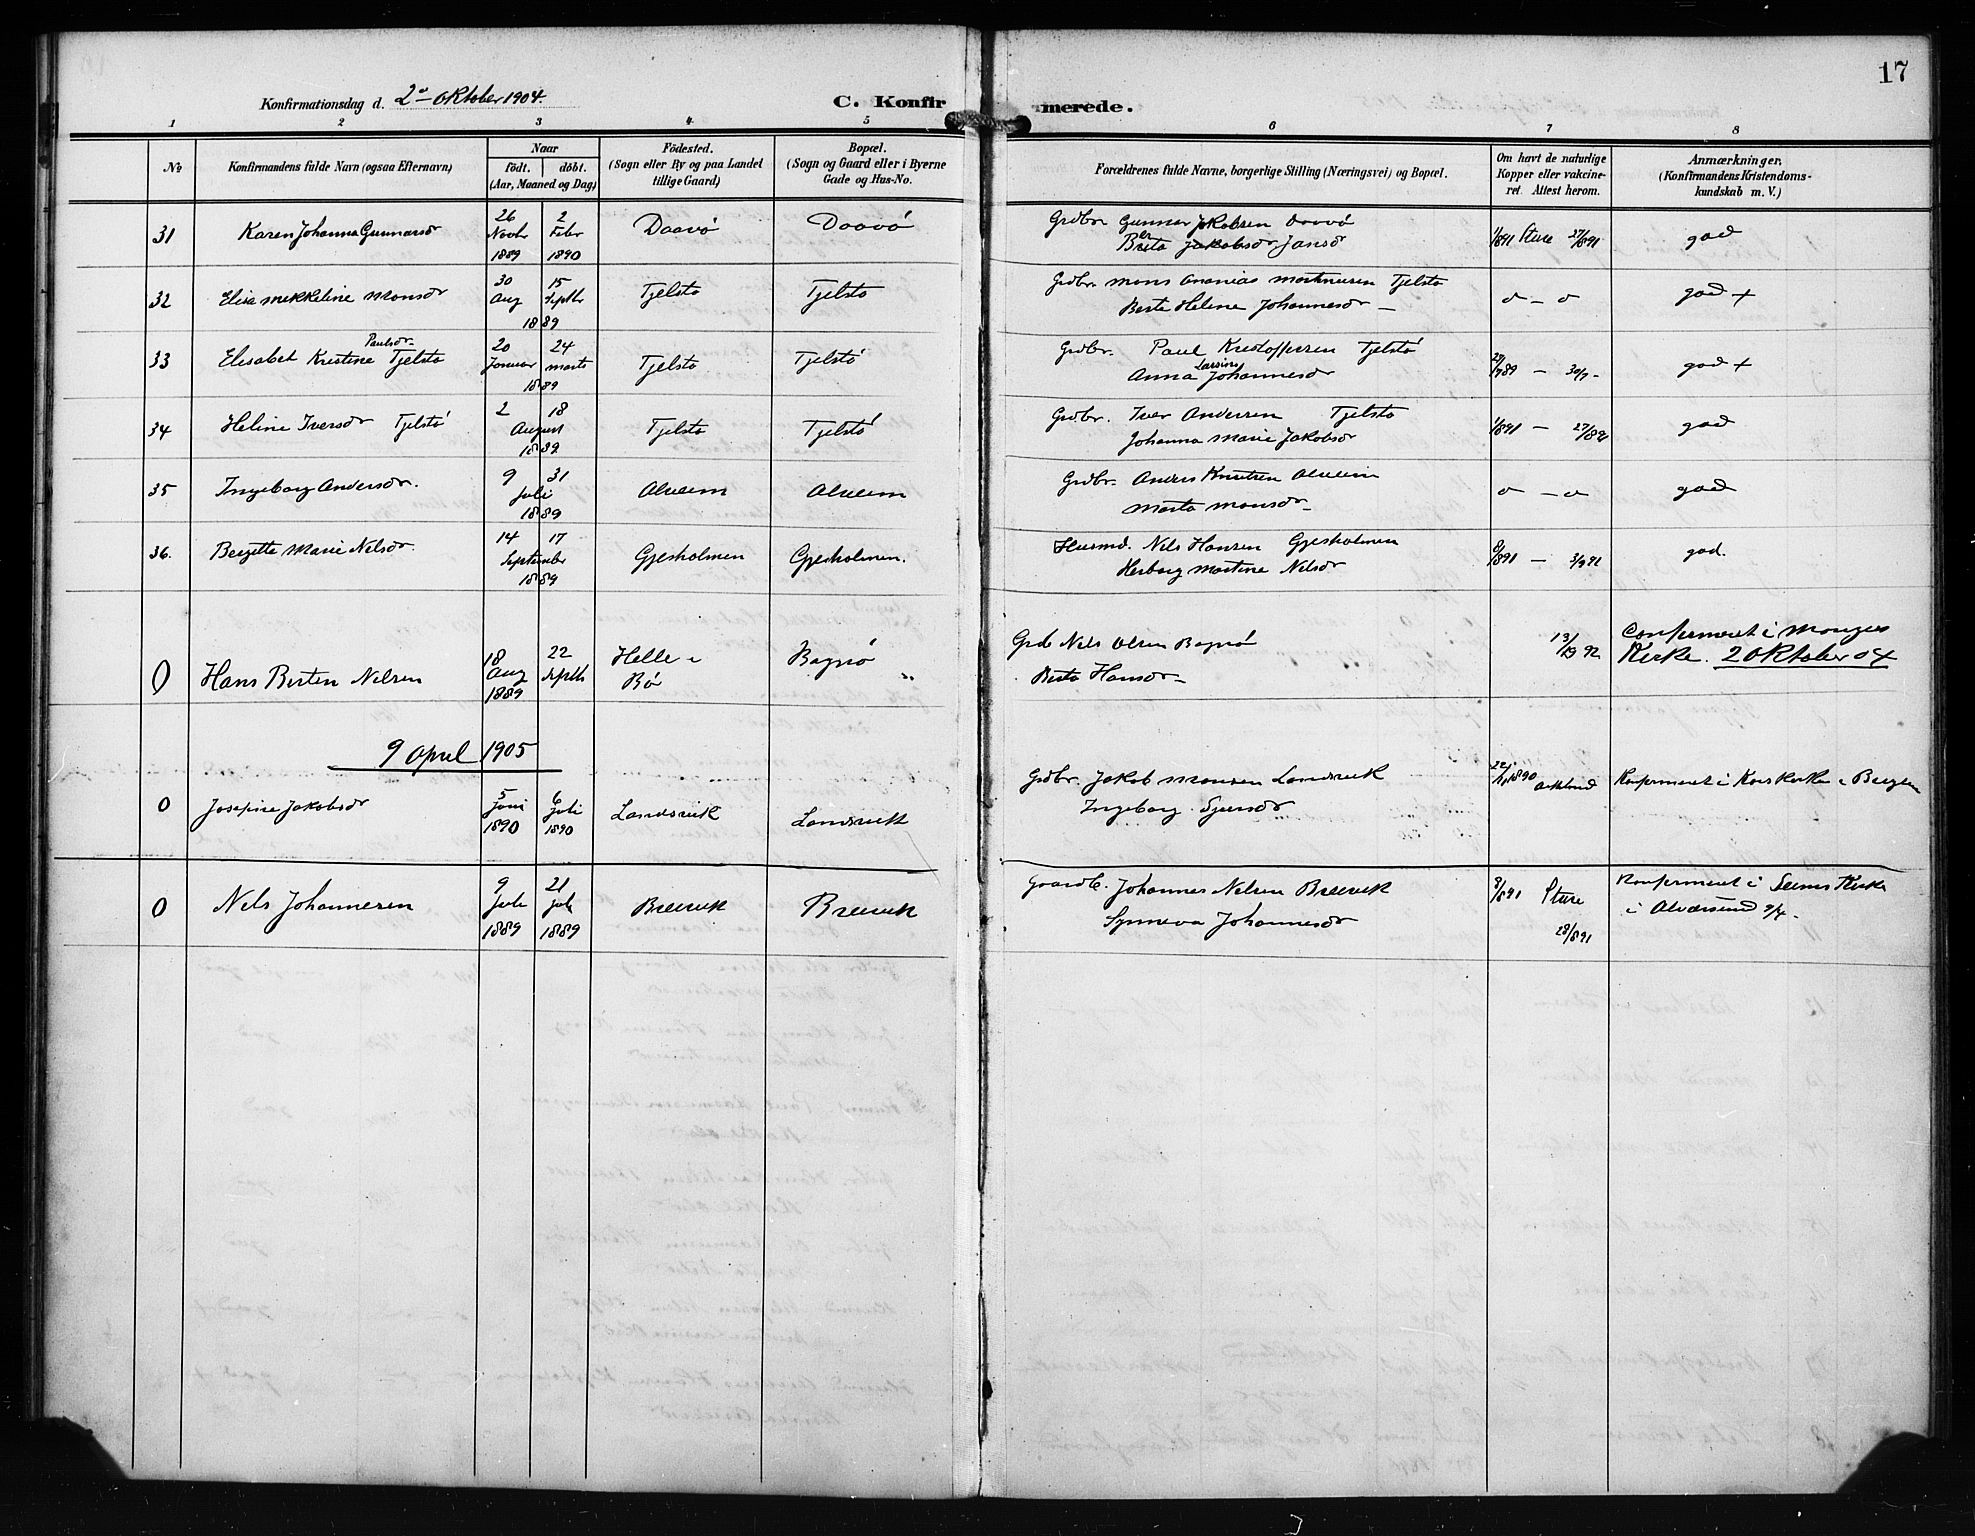 17
Konfirmationsdag d. 2den Oktober 1904.
C. Konfirmerede.
1 2 3 4 5 6 7 8
No
Konfirmandens fulde Navn (ogsaa Efternavn)
Naar
født. døbt.
(Aar, Maaned og Dag)
Fødested.
(Sogn eller By og paa Landet
tillige Gaard)
Bopæl.
(Sogn og Gaard eller i Byerne
Gade og Hus-No.
Forældrenes fulde Navne, borgerlige Stilling (Næringsvei) og Bopæl.
Om havt de naturlige
Kopper eller vakcine-
ret. Attest herom.
Anmærkninger,
(Konfirmandens Kristendoms-
kundskab m. V.)
31 Karen Johanna Gunnarsdr 26 Novbr 1889 2 Febr 1890 Daavø Daavø Grdbr. Gunnar Jakobsen Daavø
Berta Jakobsdr Jansdr 1/8 91 Sture 27/8 91 god
32 Elisa Mikkeline Monsdr 30 Aug 15 Septbr 1889 Tjelstø Tjelstø Grdbr. Mons Ananias Martinusen Tjelstø
Berte Helene Johannesdr - o - o god +
33 Elisabet Kristine Paulsdr. Tjelstø 20 Januar 24 marts 1889 Tjelstø Tjelstø Grdbr. Paul Kristoffersen Tjelstø
Anna Larsine Johannesdr - 30/7 - god +
34 Heline Iversdr Tjelstø 2 18 August 1889 Tjelstø Tjelstø Grdbr. Iver Andersen Tjelstø
Johanna Marie Jakobsdr 1/8 91 - 27/8 91 god
35 Ingeborg Andersdr. 9 31 Juli 1889 Alveim Alveim Grdbr. Anders Knutsen Alveim
Marta Monsdr - o - o god
36. Bergitte Marie Nelsdr. 14 17 September 1889 Gjesholmen Gjesholmen. Husmd. Nels Hansen Gjesholmen
Herborg Martine Nelsdr - 3/9 91 god.
0 Hans Bertin Nelsen 18 Aug 1889 22 Septb Helle i Bø Bagnø Grdb Nels Olsen Bagnø
Berta Hansdr - 13/9 92 Confirmeret i Manger
Kirke. 2 Oktober 04
9 April 1905
0 Josefine Jakobsdr 5 Juni 1890 6 Juli 1890 Landsvik Landsvik Grdbr. Jakob Monsen Landsvik
Ingeborg Sjursdr Konfirmeret i Kors Kirke i Bergen
0 Nels Johannesen 9 Juli 1889 21 Juli 1889 Breivik Breivik Gaardb. Johannes Nelsen Breivik
Synneva Johannesdr 9/8 91 Sture
28/8 91
Konfirmeret i Seims Kirke
i Alversund 9/4.